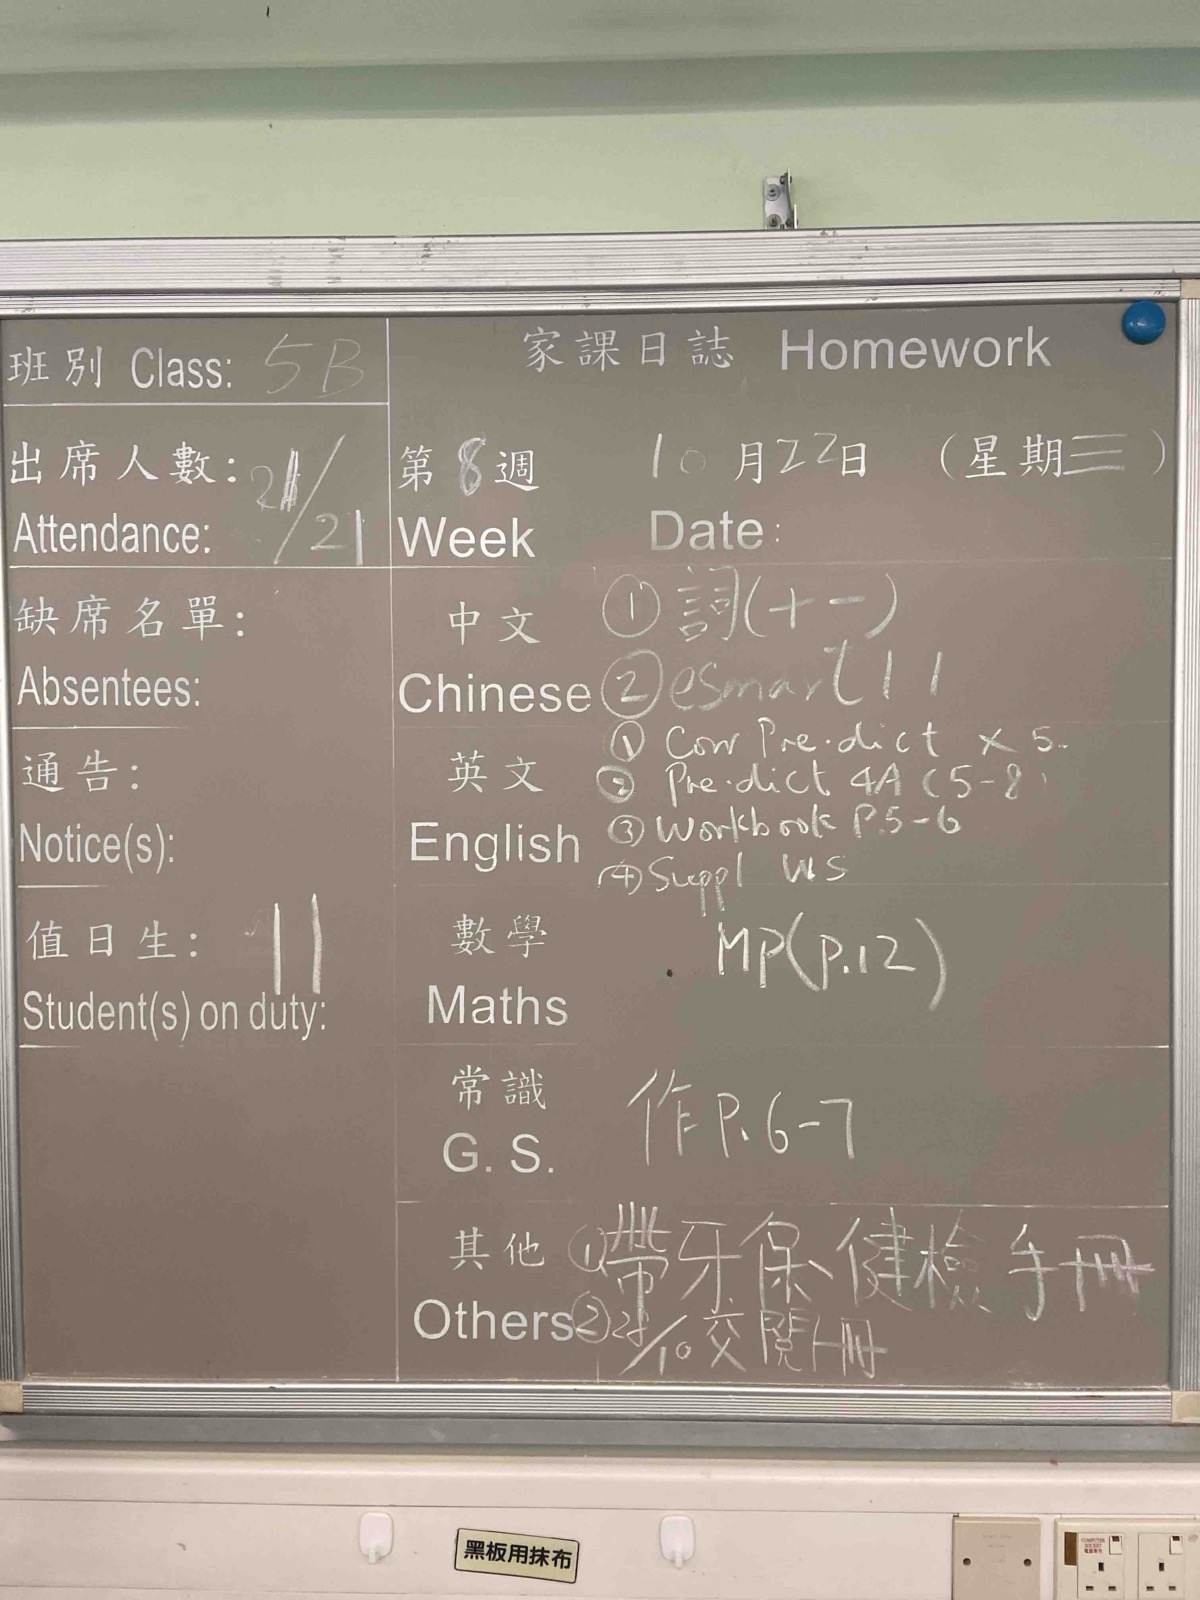 班別 Class: 5B
出席人數: 21/21
Attendance:
缺席名單:
Absentees:
通告:
Notice(s):
值日生: 11
Student(s) on duty:
家課日誌 Homework
第8週 10月22日 (星期三)
Week Date:
中文 ①詞(十一)
Chinese ②eSmart 11
英文 ① Corr Pre.dict x 5
② Pre.dict 4A (5-8)
English ③ Workbook P.5-6
④ Suppl WS
數學 MP(P.12)
Maths
常識 作P.6-7
G. S.
其他 ①帶牙保健檢手冊
Others ② /10交閱冊
黑板用抹布
COMPUTER SOCKET